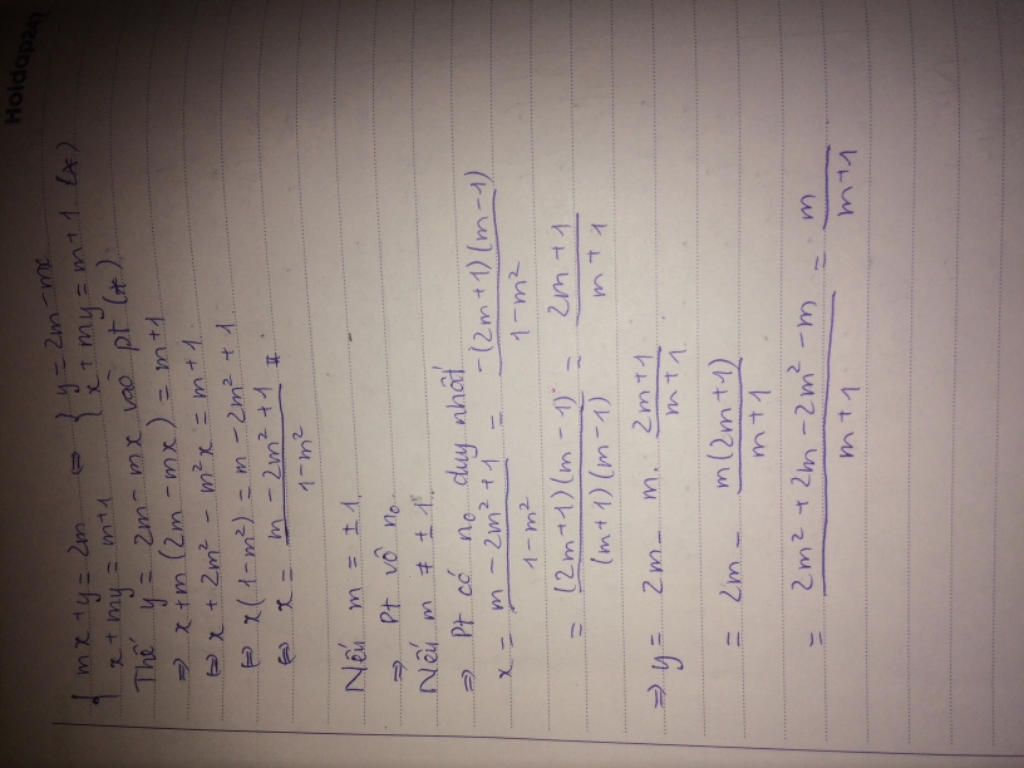 Hoidap247
{ mx + y = 2m ⇔ { y = 2m - mx
x + my = m+1 x + my = m+1 (*)
Thế y = 2m - mx vào pt (*).
⇒ x + m (2m - mx) = m+1
⇔ x + 2m² - m²x = m+1.
⇔ x(1-m²) = m - 2m² + 1.
⇔ x = \frac{m - 2m² + 1}{1-m²}
Nếu m = ±1.
⇒ Pt vô n₀
Nếu m ≠ ±1.
⇒ Pt có n₀ duy nhất
x = \frac{m - 2m² + 1}{1-m²} = \frac{-(2m+1)(m-1)}{1-m²}
= \frac{(2m+1)(m-1)}{(m+1)(m-1)} = \frac{2m+1}{m+1}
⇒ y = 2m - m. \frac{2m+1}{m+1}.
= 2m - \frac{m(2m+1)}{m+1}
= \frac{2m² + 2m - 2m² - m}{m+1} = \frac{m}{m+1}